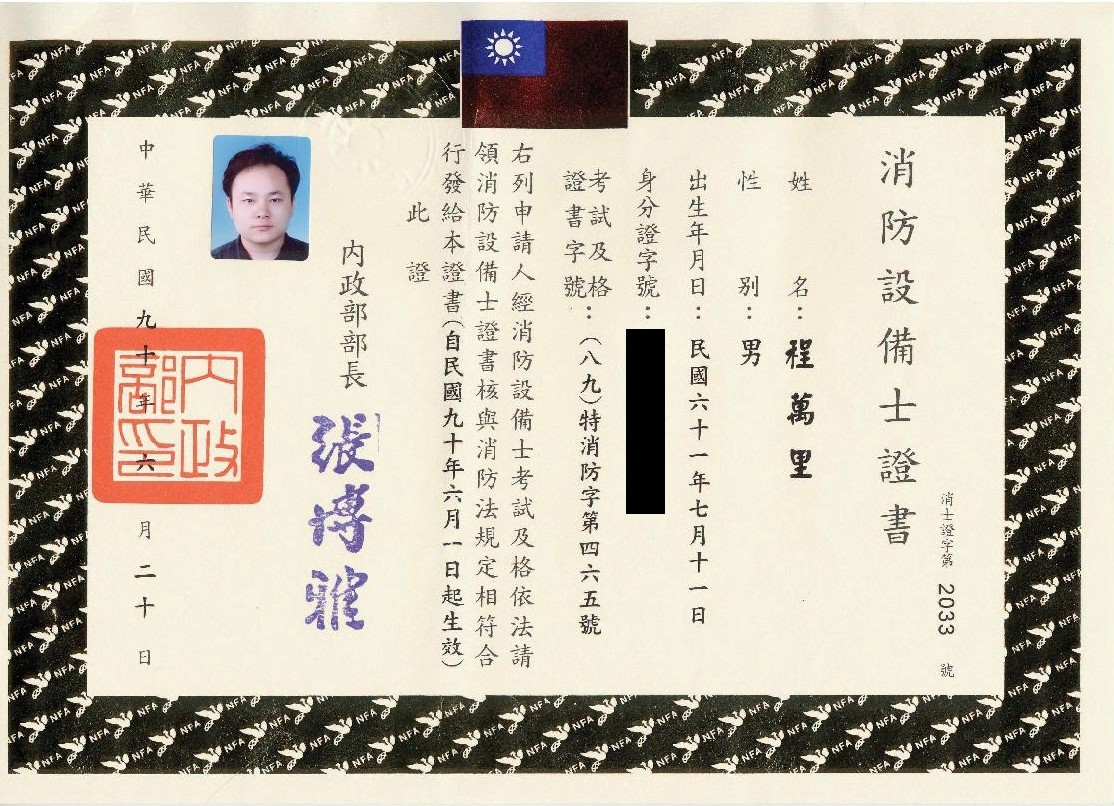 消防設備士證書
消士證字第 2033 號
姓名：程萬里
性別：男
出生年月日：民國六十一年七月十一日
身分證字號：
考試及格
證書字號：（八九）特消防字第四六五號
右列申請人經消防設備士考試及格依法請
領消防設備士證書核與消防法規定相符合
行發給本證書（自民國九十年六月一日起生效）
此證
內政部部長
張博雅
中華民國九十年六月二十日
內政部印
NFA